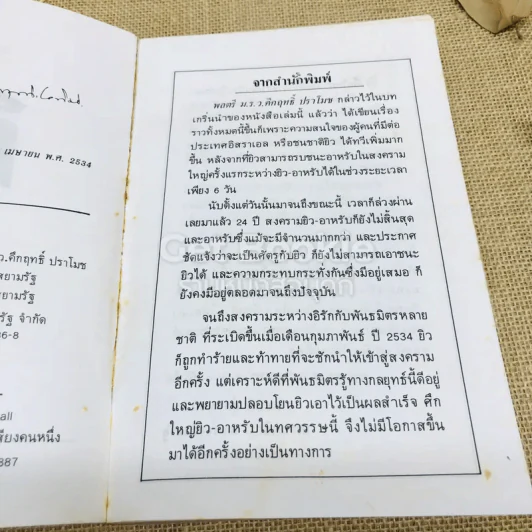 เมษายน พ.ศ. 2534
ว.คึกฤทธิ์ ปราโมช
สยามรัฐ
ยามรัฐ
รัฐ จำกัด
6-8
all
สียงคนหนึ่ง
887
จากสำนักพิมพ์
พลตรี ม.ร.ว.คึกฤทธิ์ ปราโมช กล่าวไว้ในบท
เกริ่นนำของหนังสือเล่มนี้ แล้วว่า ได้เขียนเรื่อง
ราวทั้งหมดนี้ขึ้นก็เพราะความสนใจของผู้คนที่มีต่อ
ประเทศอิสราเอล หรือชนชาติยิว ได้ทวีเพิ่มมาก
ขึ้น หลังจากที่ยิวสามารถรบชนะอาหรับในสงคราม
ใหญ่ครั้งแรกระหว่างยิว-อาหรับได้ในช่วงระยะเวลา
เพียง 6 วัน
นับตั้งแต่วันนั้นมาจนถึงขณะนี้ เวลาก็ล่วงผ่าน
เลยมาแล้ว 24 ปี สงครามยิว-อาหรับก็ยังไม่สิ้นสุด
และอาหรับซึ่งแม้จะมีจำนวนมากกว่า และประกาศ
ชัดแจ้งว่าจะเป็นศัตรูกับยิว ก็ยังไม่สามารถเอาชนะ
ยิวได้ และความกระทบกระทั่งกันซึ่งมีอยู่เสมอ ก็
ยังคงมีอยู่ตลอดมาจนถึงปัจจุบัน
จนถึงสงครามระหว่างอิรักกับพันธมิตรหลาย
ชาติ ที่ระเบิดขึ้นเมื่อเดือนกุมภาพันธ์ ปี 2534 ยิว
ก็ถูกทำร้ายและท้าทายที่จะชักนำให้เข้าสู่สงคราม
อีกครั้ง แต่เคราะห์ดีที่พันธมิตรรู้ทางกลยุทธ์นี้ดีอยู่
และพยายามปลอบโยนยิวเอาไว้เป็นผลสำเร็จ ศึก
ใหญ่ยิว-อาหรับในทศวรรษนี้ จึงไม่มีโอกาสขึ้น
มาได้อีกครั้งอย่างเป็นทางการ